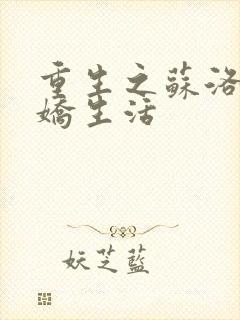 重生之蘇洛
嬌生活
妖芝藍